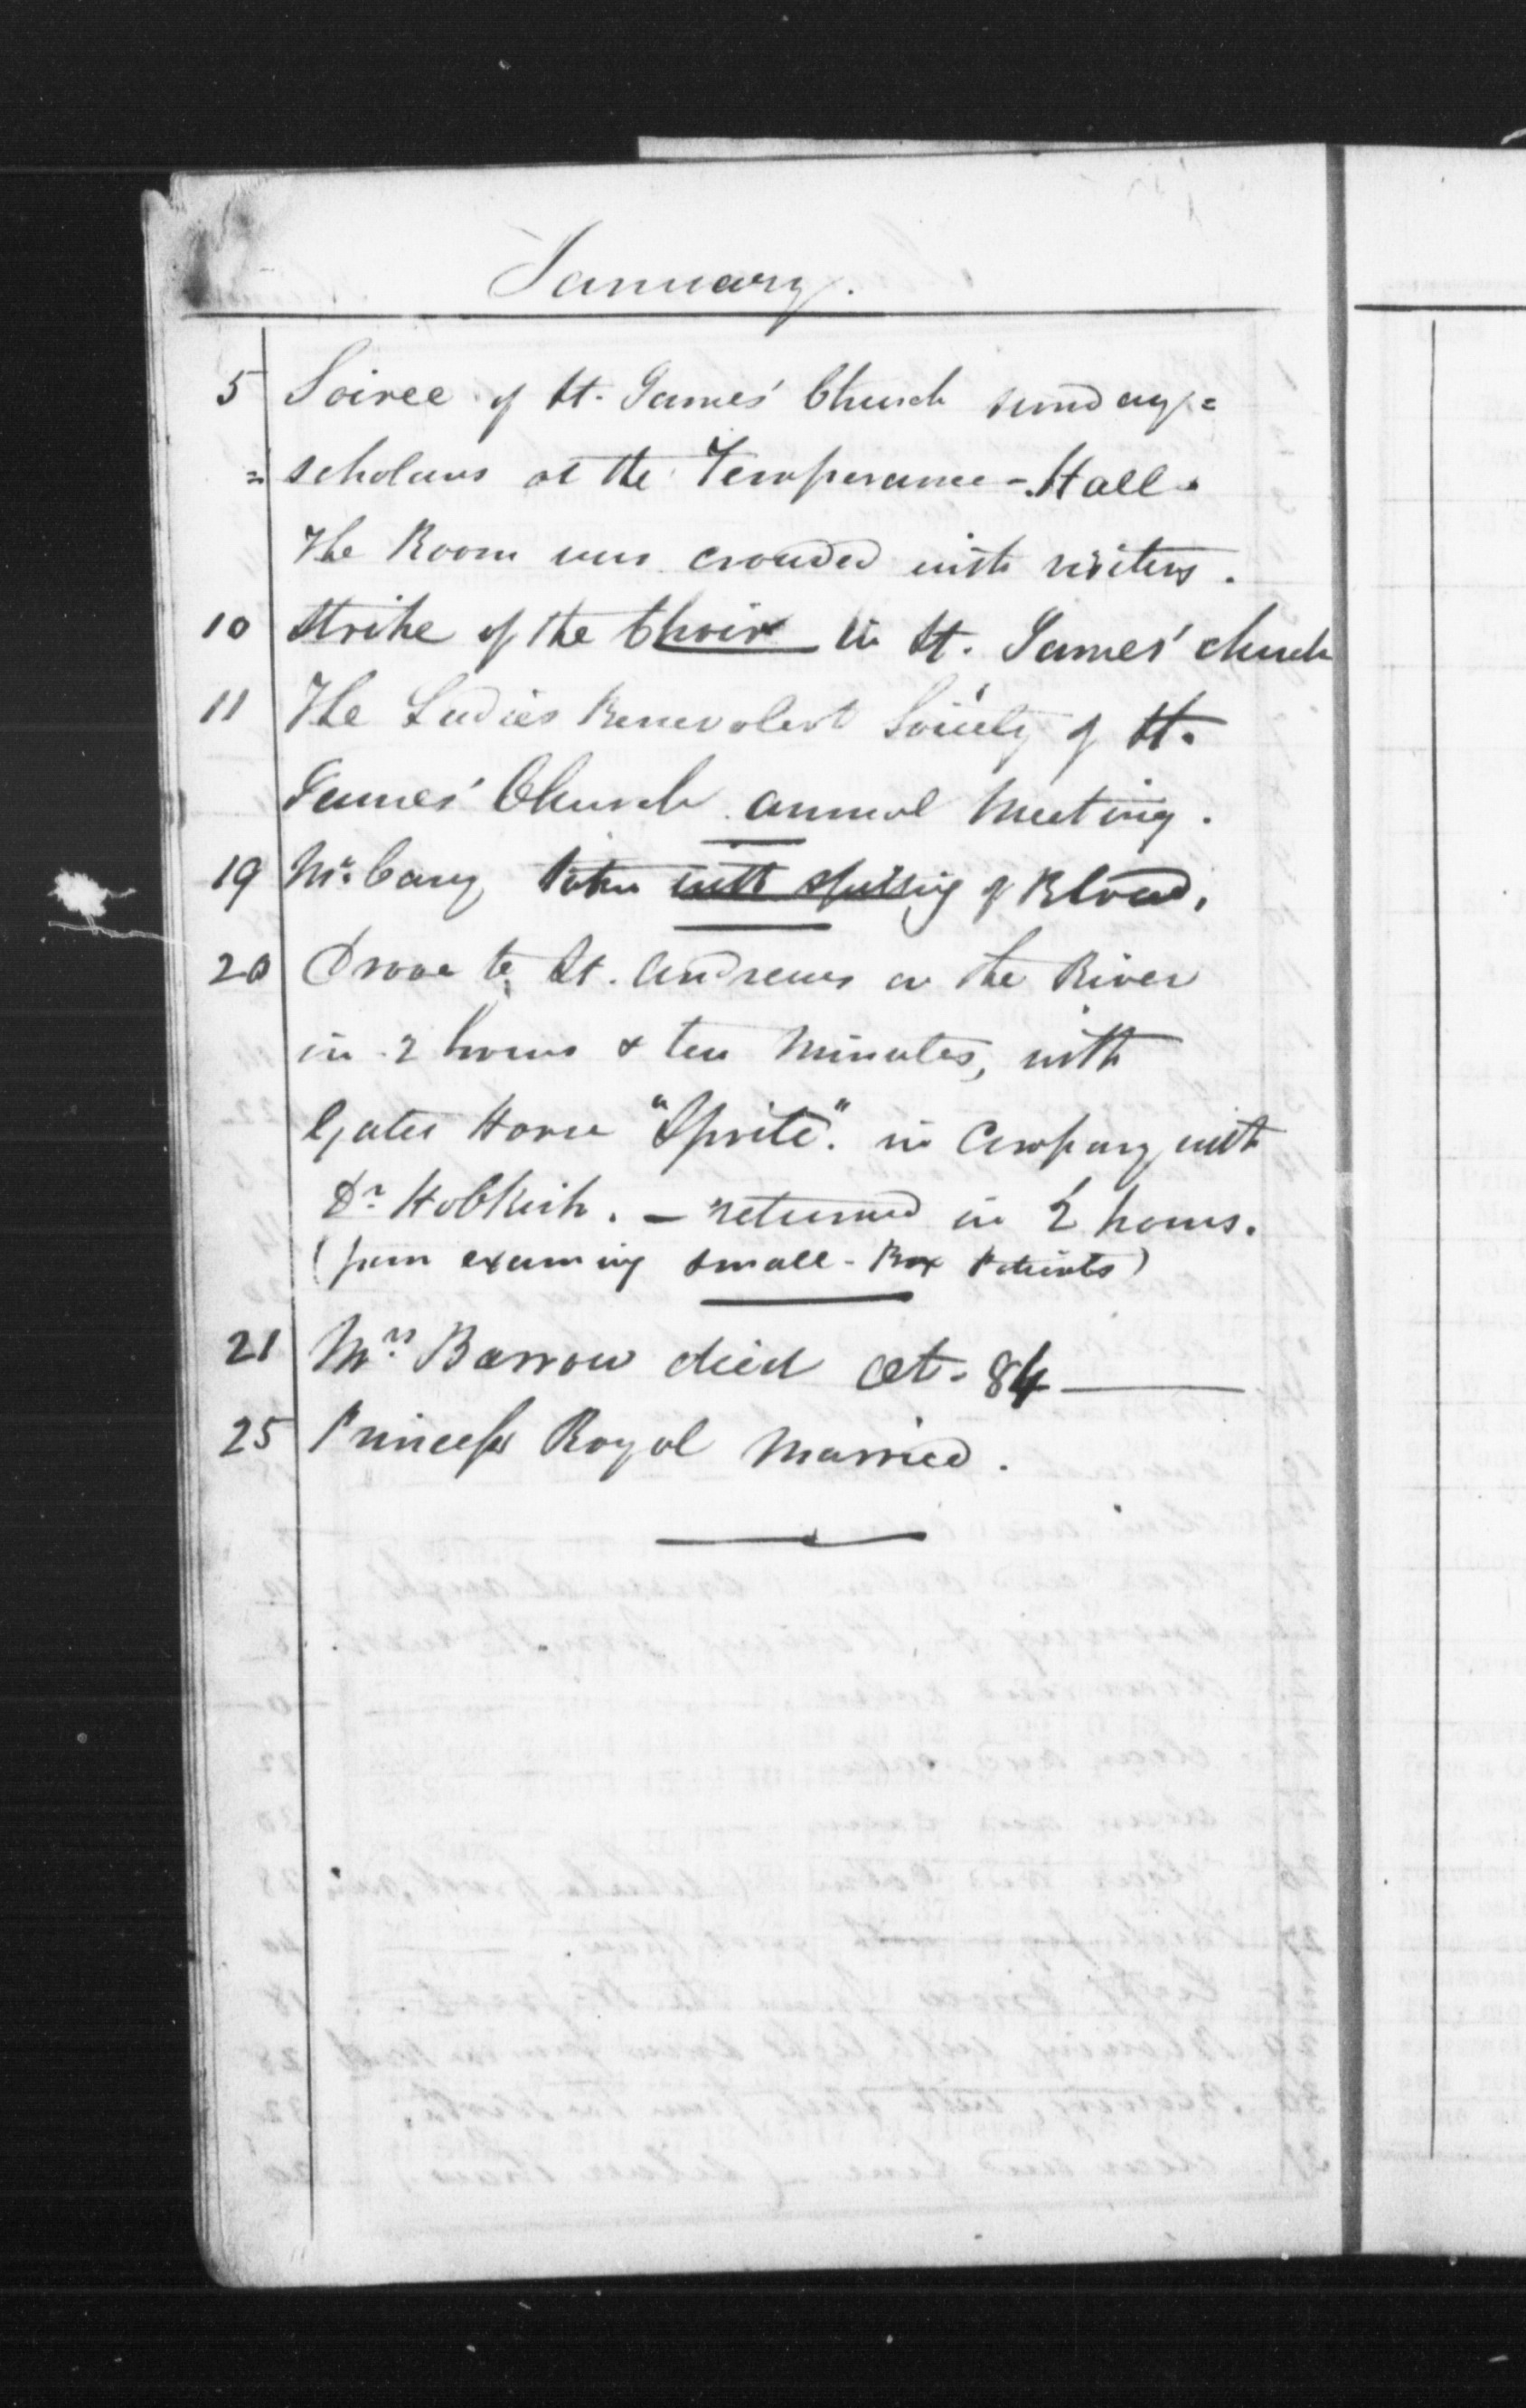 January.
5 Soiree of St. James' Church sunday=
= scholars at the Temperance-Hall.
The Room was crowded with visiters.
10 Strike of the Choir in St. James' church
11 The Ladies Benevolent Society of St.
James' Church annual Meeting.
19 Mr. Cary taken with spitting of Blood.
20 Drove to St. Andrews on the River
in 2 hours & ten Minutes, with
Gates Horse "Sprite". in Company with
Dr Hobkirk. - returned in 2 hours.
(from examing small-Pox Patients)
21 Mrs Barrow died aet. 84
25 Princess Royal Married.